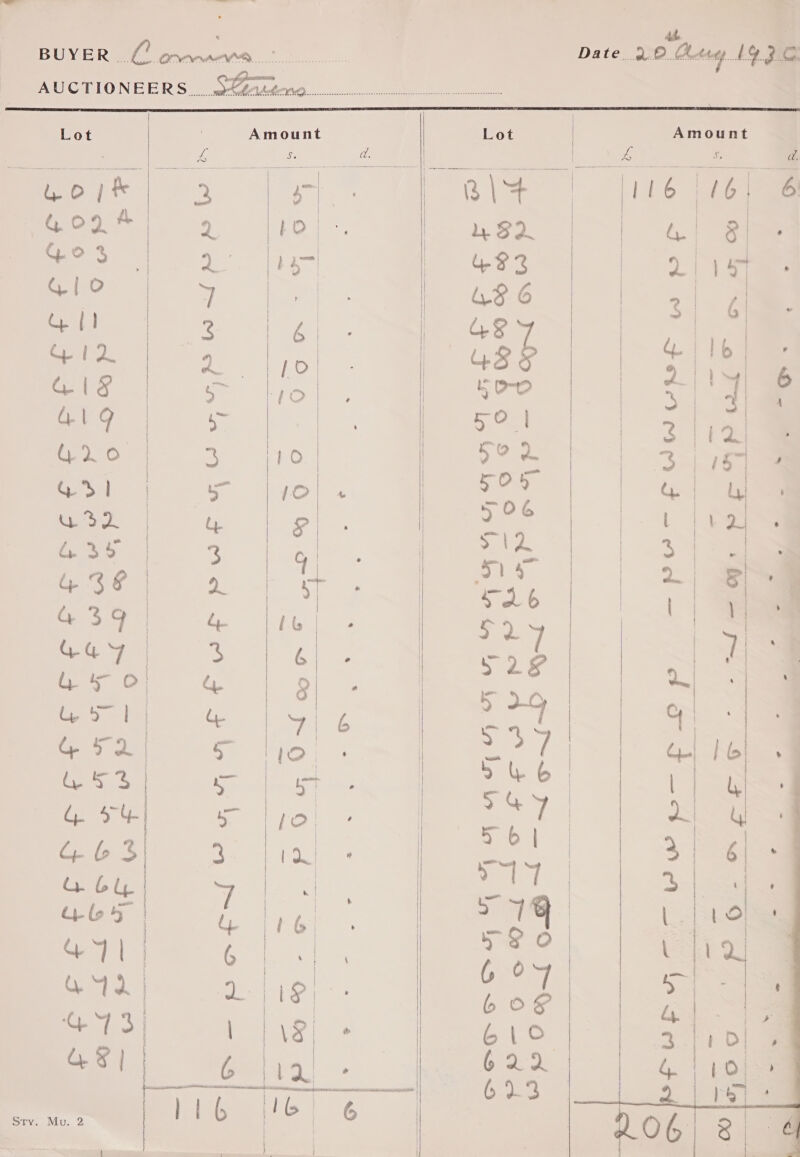 BUYER Connors
Date 20th Aug 1930
AUCTIONEERS
Lot Amount
£ s. d.
401A 3 5 .
402A 2 10 .
403 2 15
410 7 . .
411 3 6 .
412 2 10 .
418 5 10 .
419 5 .
420 3 10
431 5 10 .
432 4 8 .
435 3 9 .
438 2 5 .
439 4 16 .
447 3 6 .
450 4 8 .
451 4 7 6
452 5 10 .
453 5 5 .
454 5 10 .
463 3 12 .
464 7 . .
465 4 16 .
471 6 . .
472 2 18 .
473 1 18 .
481 6 12 .
116 16 6
Srv. Mu. 2
Lot Amount
£ s. d.
B/F 116 16 6
482 4 8 .
483 2 15 .
486 3 6 .
487 4 16 .
488 2 17 6
500 3 3 .
501 3 12 .
502 3 15 .
505 4 4 .
506 1 12 .
512 3 . .
515 2 8 .
526 1 1 .
527 7 . .
528 2 . .
529 9 . .
537 4 16 .
546 1 4 .
547 2 4 .
561 3 6 .
577 3 . .
579 1 10 .
580 1 12
607 5 . .
608 4 . .
610 3 10 .
622 4 10 .
623 2 15 .
206 8